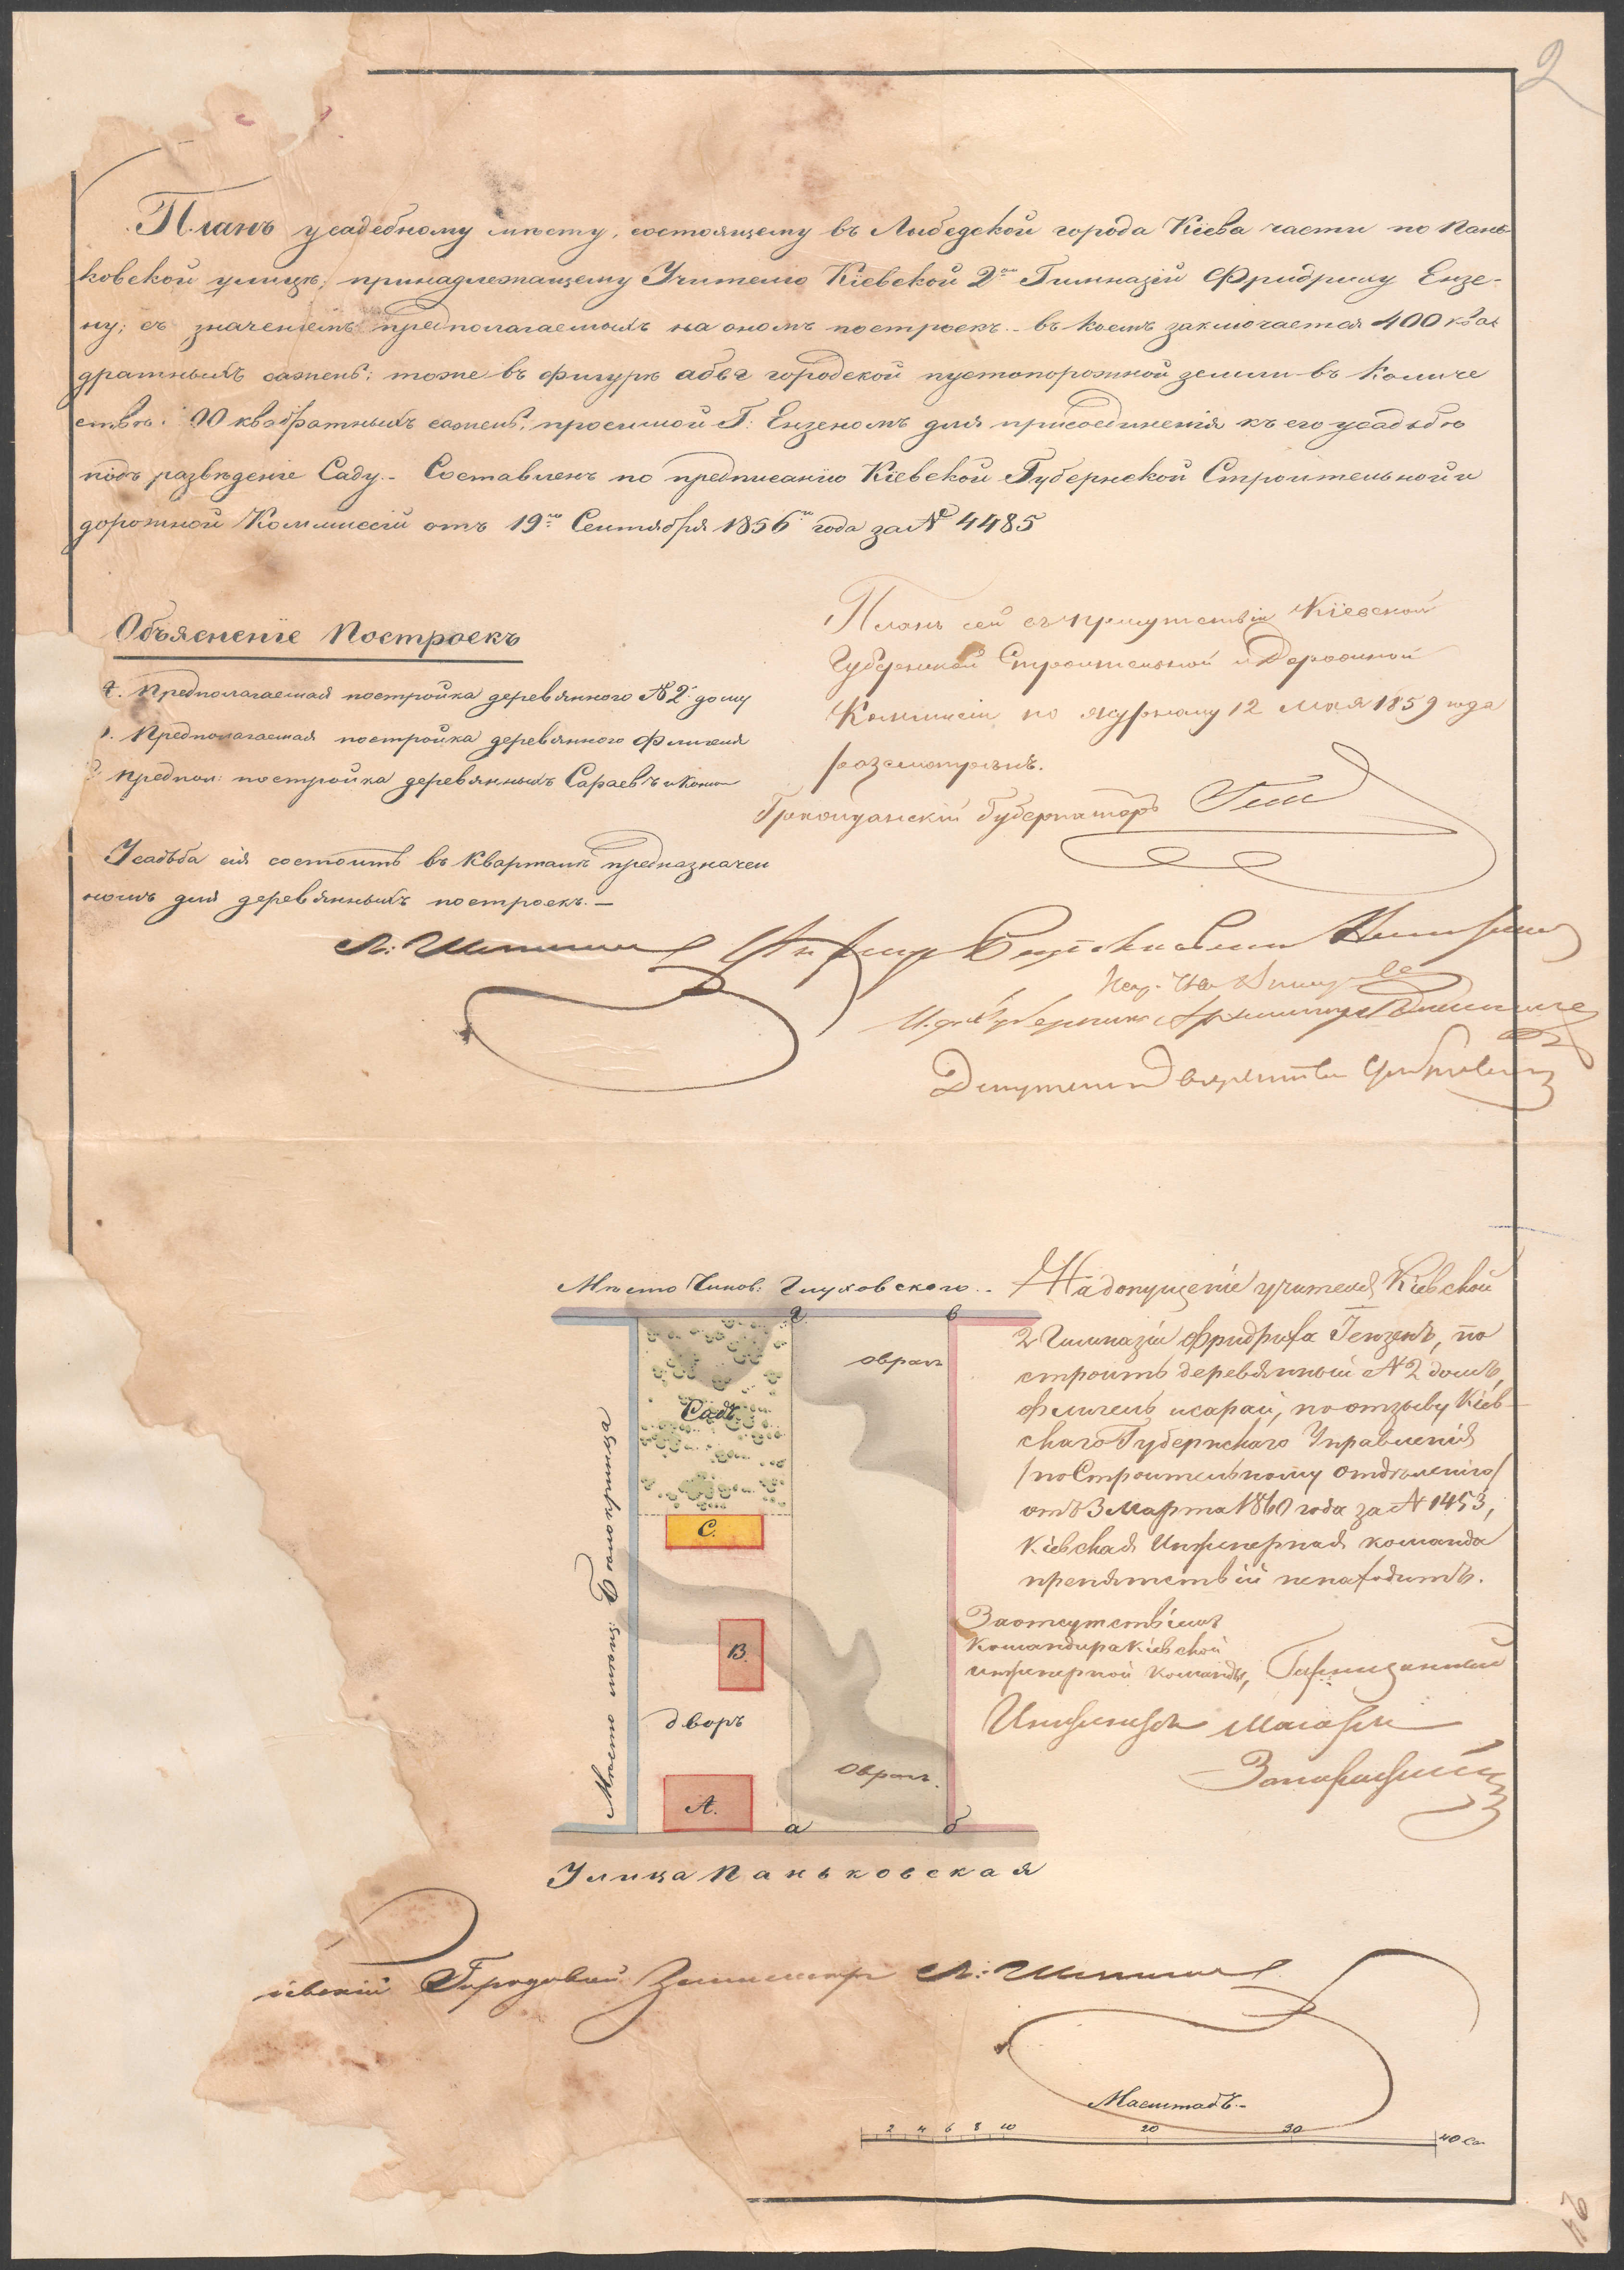 2
Планъ усадебному мѣсту, состоящему въ Лыбедской города Кіева части по Пань
ковской улицѣ, принадлежащему Учителю Кіевской 2й Гимназіи Фридриху Ензе-
ну; съ значеніемъ предполагаемыхъ на ономъ построекъ - въ коемъ заключается 400 ква
дратныхъ сажень; тоже въ фигурѣ абвг городской пустопорожной земли въ количе
ствѣ 00 квадратныхъ сажень, просимой Г: Ензеномъ для присоединенія къ его усадьбѣ
подъ разведеніе Саду.- Составленъ по предписанію Кіевской Губернской Строительной и
дорожной Коммиссіи отъ 19го Сентября 1856го года за № 4485
Объясненіе Построекъ
Предполагаемая постройка деревянного №2 дому
Предполагаемая постройка деревянного Флигеля
Предпол: постройка деревянныхъ Сараевъ и Конюш
Усадьба сія состоитъ въ кварталѣ предназначен
номъ для деревянныхъ построекъ.-
Планъ сей съ присутствіи Кіевской
Губернской Строительной и Дорожной
Комиссіи по журналу 12 Мая 1859 года
разсмотрѣнъ.
Гражданскій Губернаторъ
Л: Депутатъ Дворянства
Мѣсто Чинов: Глуховского.-
г в
оврагъ
Садъ
С.
В.
дворъ
оврагъ.
А.
а б
Мѣсто мѣщ:
Улица Паньковская
На допущеніе учителя Кіевской
2 Гимназіи Фридриха Гензенъ, по
строить деревянный №2 домъ,
флигель и сарай, по отзыву Кіев-
скаго Губернскаго Управленія
/по Строительному отдѣленію/
отъ 3 Марта 1860 года за № 1453,
Кіевская Инженерная команда
препятствій ненаходитъ.
За отсутствіемъ
Командира Кіевской
инженерной команды, Гарнизонный
Инженеръ
іевскій Городовой Землемѣръ Л:
Масштабъ.-
2 4 6 8 10 20 30 40 Са.
24